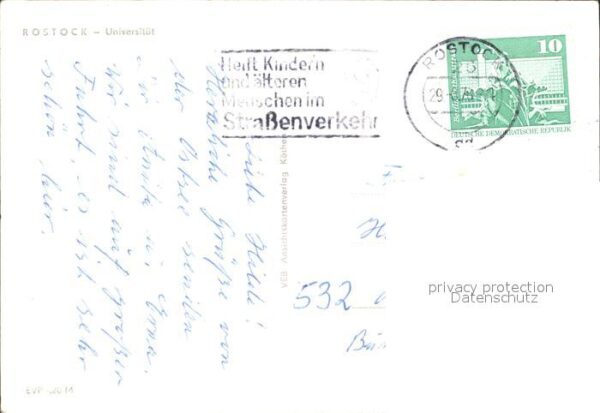 ROSTOCK – Universität
Helft Kindern
und älteren
Menschen im
Straßenverkehr
ROSTOCK
10
DEUTSCHE DEMOKRATISCHE REPUBLIK
Liebe Hilde!
Herzliche Grüße von
der Ostsee senden
dir Anita u. Erna.
Wir sind auf großer
Fahrt, es ist sehr
schön hier.
VEB Ansichtskartenverlag
532
privacy protection
Datenschutz